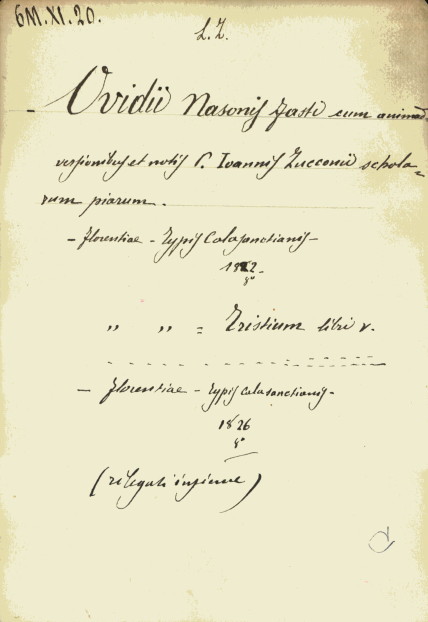 6M.XI.20.
L. I.
- Ovidii Nasonis Fasti cum animad-
versionibus et notis P. Ioannis Zucconii schola-
rum piarum.
- Florentiae - Typis Calasanctianis -
1822.
8°
" " = Tristium libri V.
- Florentiae - Typis Calasanctianis -
1826
8°
(rilegati insieme)